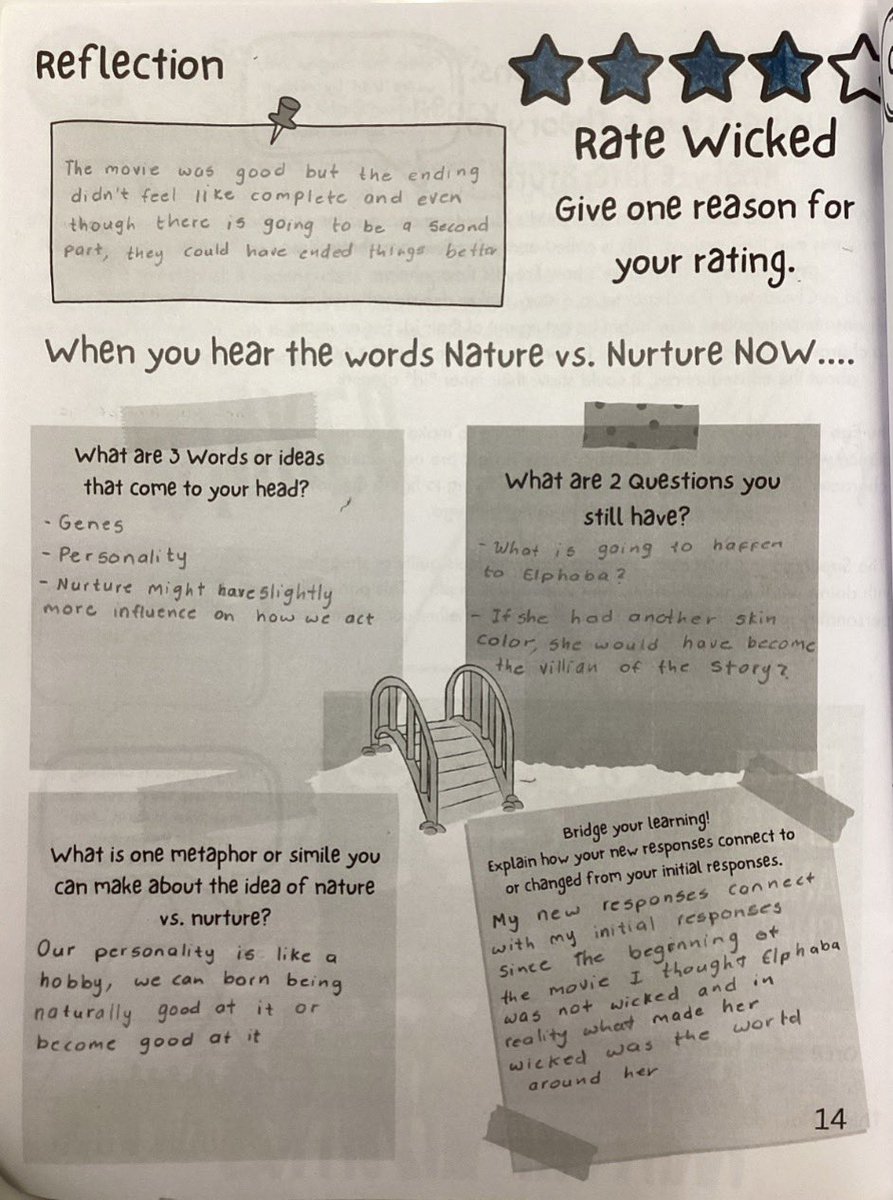 Reflection
The movie was good but the ending
didn't feel like complete and even
though there is going to be a second
part, they could have ended things better
Rate Wicked
Give one reason for
your rating.
When you hear the words Nature vs. Nurture NOW....
What are 3 Words or ideas
that come to your head?
- Genes
- Personality
- Nurture might have slightly
more influence on how we act
What are 2 Questions you
still have?
- What is going to haffen
to Elphaba?
- If she had another skin
color, she would have become
the villian of the story?
What is one metaphor or simile you
can make about the idea of nature
vs. nurture?
Our personality is like a
hobby, we can born being
naturally good at it or
become good at it
Bridge your learning!
Explain how your new responses connect to
or changed from your initial responses.
My new responses connect
with my initial responses
since the begenning of
the movie I thought Elphaba
was not wicked and in
reality what made her
wicked was the world
around her
14